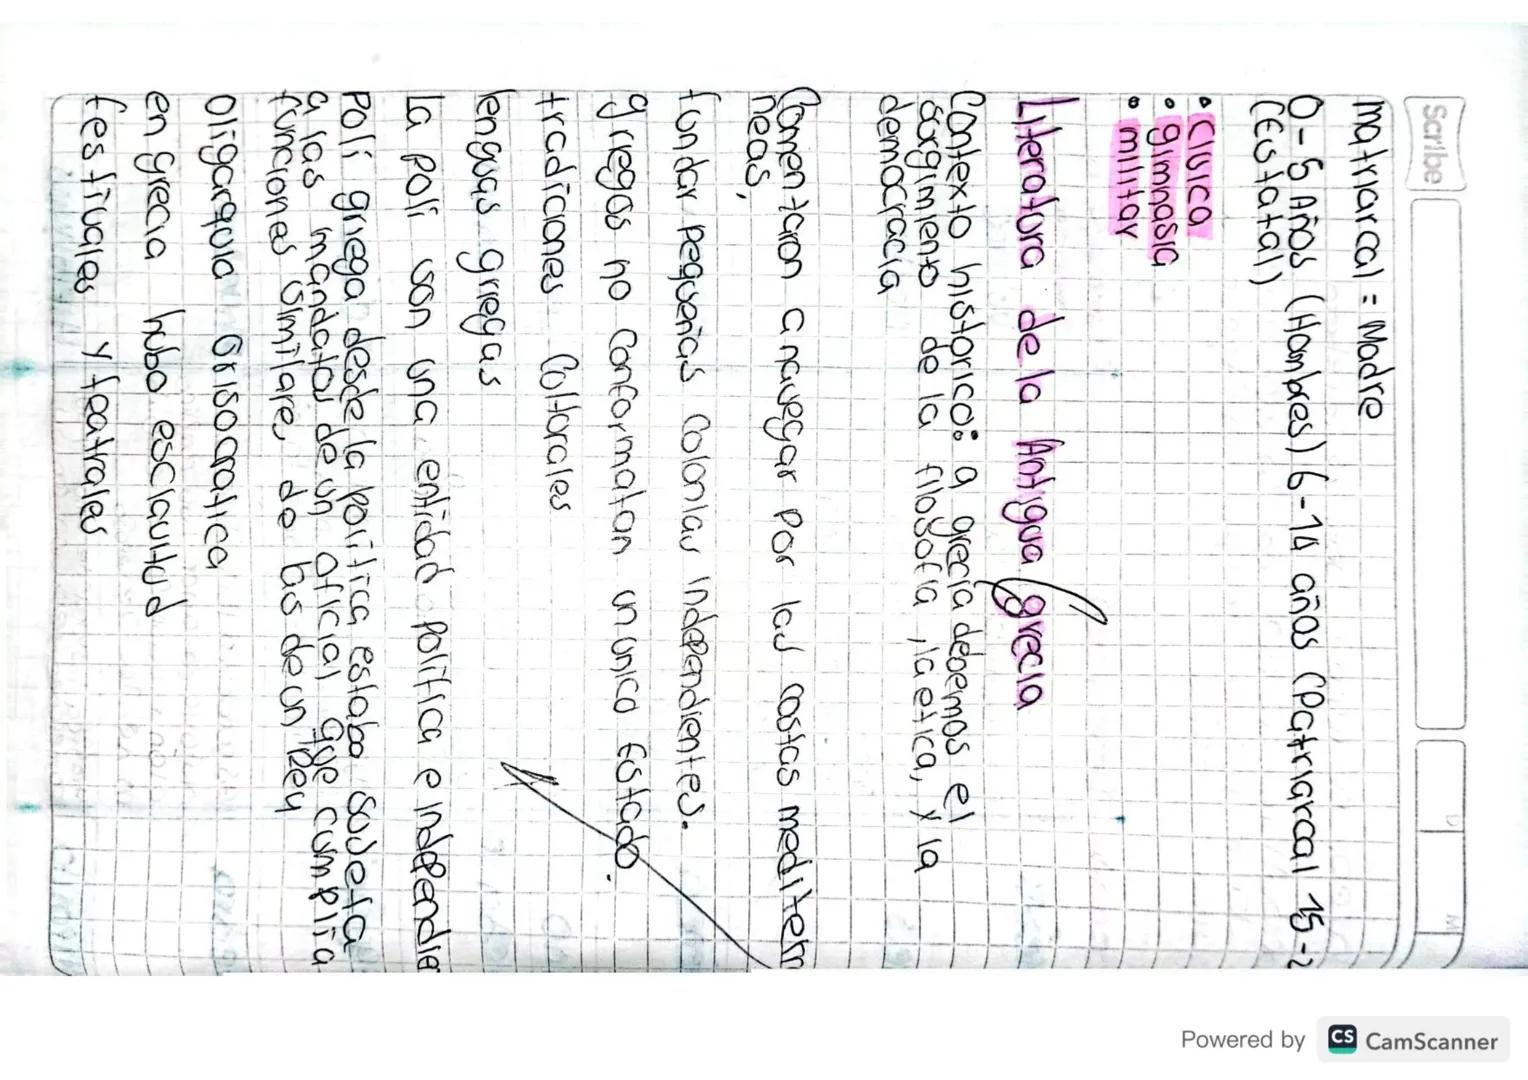 Scribe
D M
matriarcal = Madre
0-5 Años (Hombres) 6-14 años (Patriarcal 15-2
(Estatal)
• civica
• gimnasia
• militar
Literatura de la Antigua grecia
Contexto historico: a grecia debemos el
surgimiento de la filosofia, la etica, y la
democracia
Comentaron a navegar por las costas mediterr
neas,
fundar pequeñas colonias independientes.
griegas no conformatan un unico Estado.
tradiciones Culturales
lenguas griegas
La poli son una entidad politica e independie
Poli griega desde la politica estaba sujeta
a las mandatos de un oficial que cumplia
funciones similare, de las de un Rey
Oligarquia
en grecia hubo esclavitud
festivales y teatrales
Powered by CS CamScanner